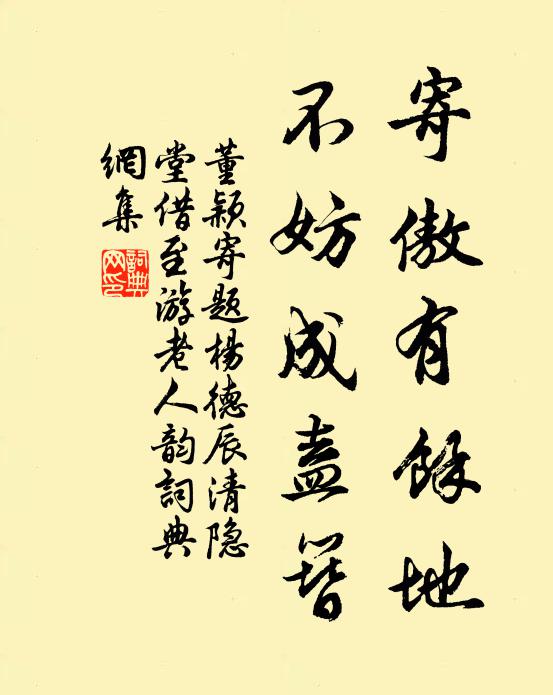 寄傲有餘地
不妨成盍簪
董颖寄題楊德辰清隐
堂借至游老人韵詞典
網集
詞典
网印